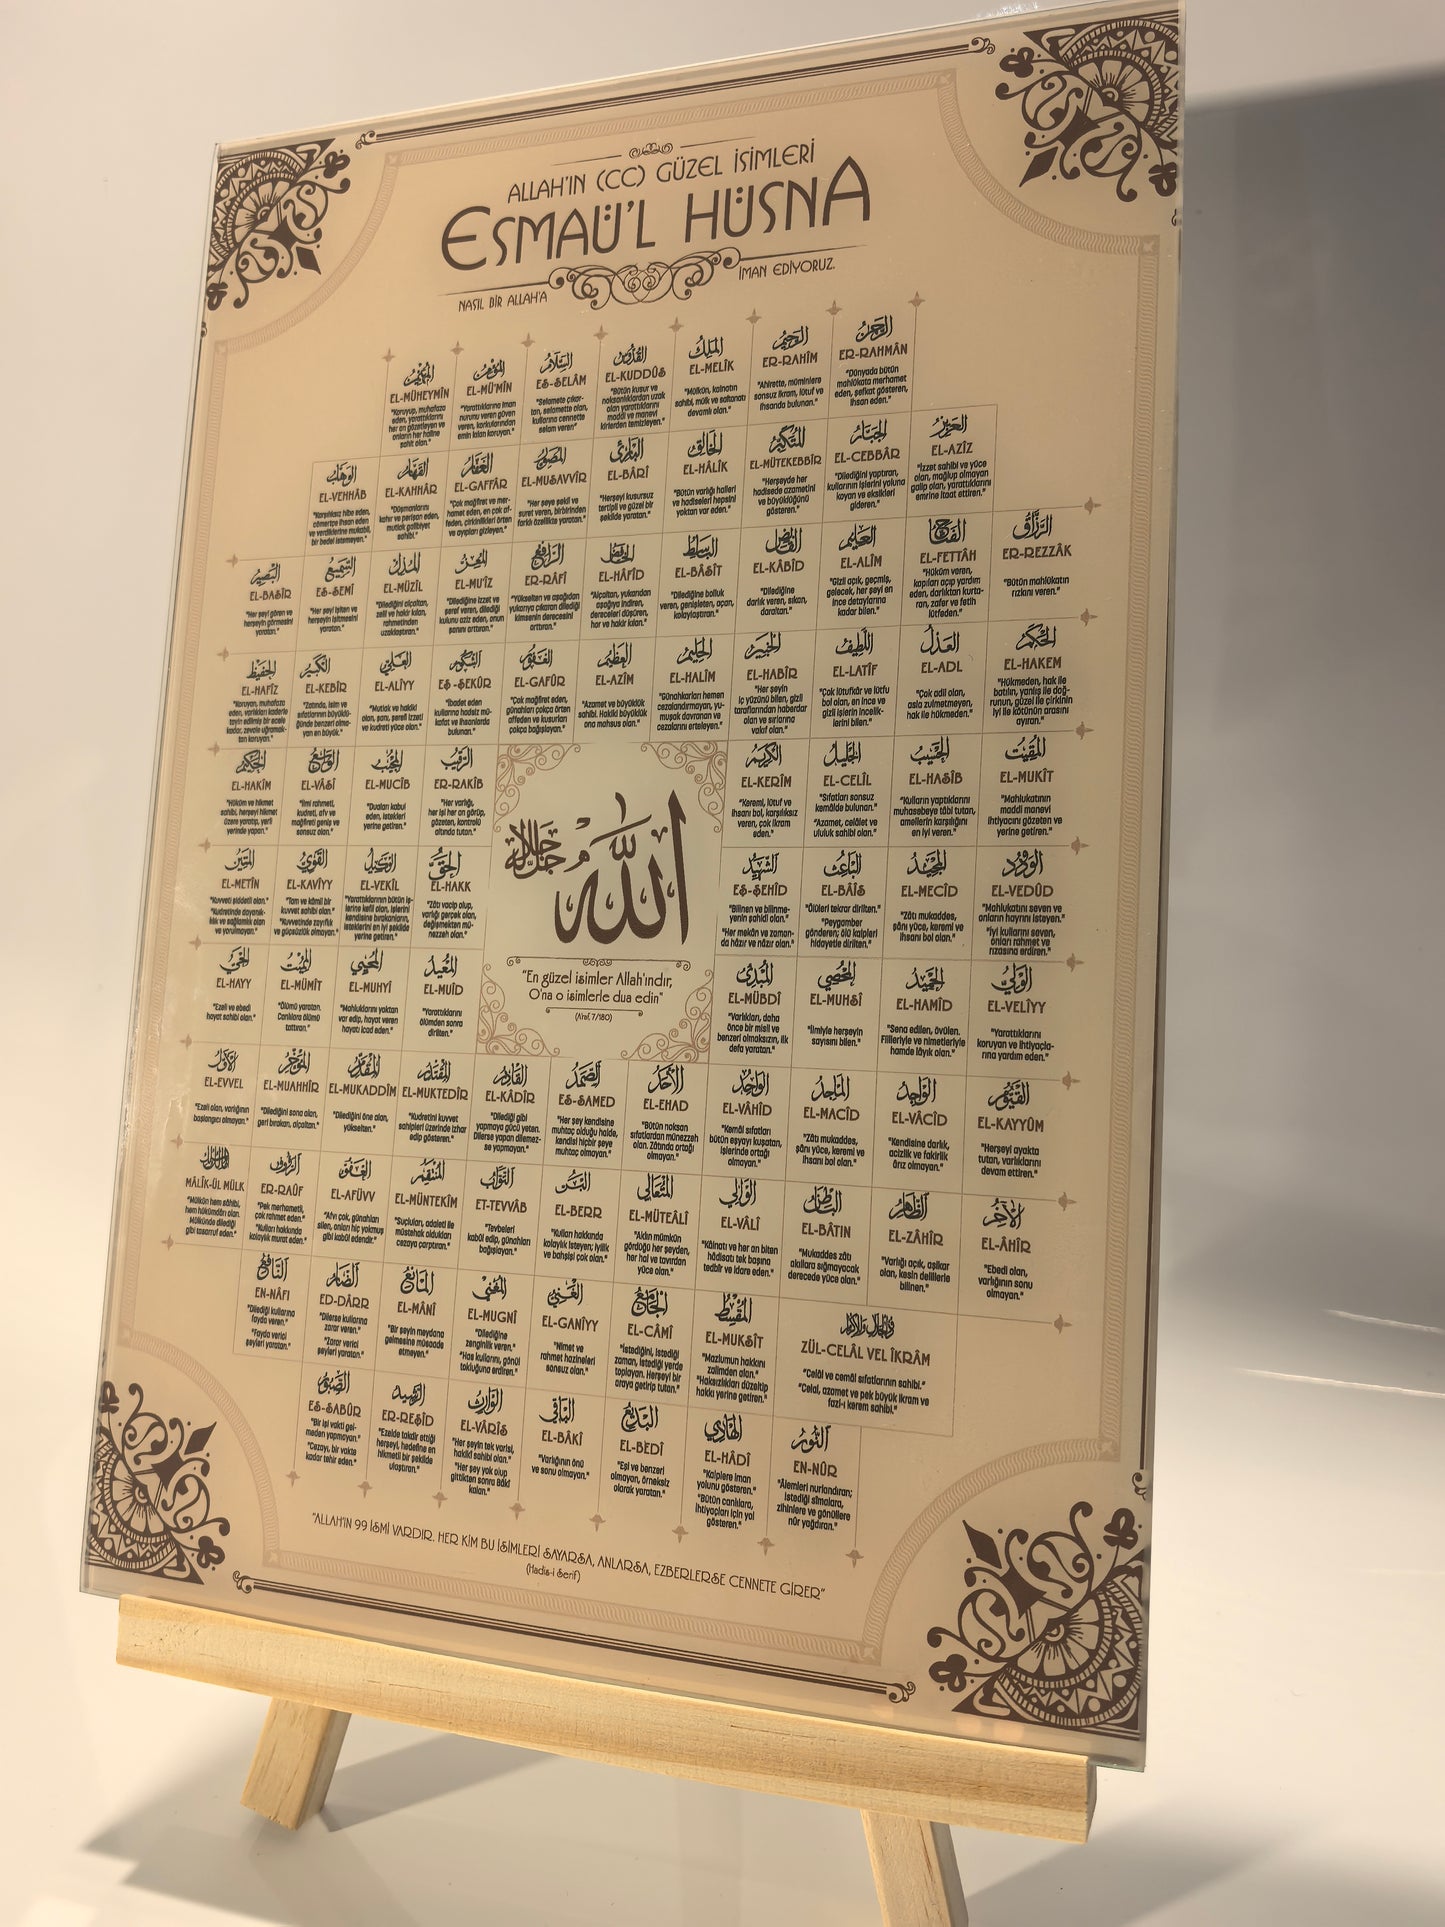 ALLAH'IN (CC) GÜZEL İSİMLERİ
ESMAÜ'L HÜSNA
NASIL BİR ALLAH'A
İMAN EDİYORUZ.
الرحمن
ER-RAHMÂN
"Dünyada bütün
mahlûkata merhamet
eden, şefkat gösteren,
ihsan eden."
الرحيم
ER-RAHÎM
"Ahirette, müminlere
sonsuz ikram, lûtuf ve
ihsanda bulunan."
الملك
EL-MELİK
"Mülkün, kainatın
sahibi, mülk ve saltanatı
devamlı olan."
القدوس
EL-KUDDÛS
"Bütün kusur ve
noksanlıklardan uzak
olan yarattıklarını
maddi ve manevi
kirlerden temizleyen."
السلام
ES-SELÂM
"Selamete çıkar-
tan, selamette olan,
kullarına cennette
selam veren"
المؤمن
EL-MÜ'MİN
"Yarattıklarına iman
nurunu veren güven
veren, korkularından
emin kılan koruyan."
المهيمن
EL-MÜHEYMİN
"Koruyup, muhafaza
eden, yarattıklarını
her an gözetleyen ve
onların her haline
şahit olan."
العزيز
EL-AZÎZ
"İzzet sahibi ve yüce
olan, mağlup olmayan
galip olan, yarattıklarını
emrine itaat ettiren."
الجبار
EL-CEBBÂR
"Dilediğini yaptıran,
kullarının işlerini yoluna
koyan ve eksikleri
gideren."
المتكبر
EL-MÜTEKEBBİR
"Herşeyde her
hadisede azametini
ve büyüklüğünü
gösteren."
الخالق
EL-HÂLİK
"Bütün varlığı halleri
ve hadiseleri hepsini
yoktan var eden."
البارئ
EL-BÂRÎ
"Herşeyi kusursuz
tertipli ve güzel bir
şekilde yaratan."
المصور
EL-MUSAVVİR
"Her şeye şekil ve
suret veren, birbirinden
farklı özellikte yaratan."
الغفار
EL-GAFFÂR
"Çok mağfiret ve mer-
hamet eden, en çok af-
feden, çirkinlikleri örten
ve ayıpları gizleyen."
القهار
EL-KAHHÂR
"Düşmanlarını
kahır ve perişan eden,
mutlak galibiyet
sahibi."
الوهاب
EL-VEHHÂB
"Karşılıksız hibe eden,
cömertçe ihsan eden
ve verdiklerine mukabil,
bir bedel istemeyen."
الرزاق
ER-REZZÂK
"Bütün mahlûkatın
rızkını veren."
الفتاح
EL-FETTÂH
"Hüküm veren,
kapıları açıp yardım
eden, darlıktan kurta-
ran, zafer ve fetih
lütfeden."
العليم
EL-ALÎM
"Gizli açık, geçmiş,
gelecek, her şeyi en
ince detaylarına
kadar bilen."
القابض
EL-KÂBİD
"Dilediğine
darlık veren, sıkan,
daraltan."
الباسط
EL-BÂSİT
"Dilediğine bolluk
veren, genişleten, açan,
kolaylaştıran."
الخافض
EL-HÂFİD
"Alçaltan, yukarıdan
aşağıya indiren,
dereceleri düşüren,
hor ve hakir kılan."
الرافع
ER-RÂFİ
"Yükselten ve aşağıdan
yukarıya çıkaran dilediği
kimsenin derecesini
arttıran."
المعز
EL-MU'İZ
"Dilediğine izzet ve
şeref veren, dilediği
kulunu aziz eden, onun
şanını arttıran."
المذل
EL-MÜZİL
"Dilediğini alçaltan,
zelil ve hakir kılan,
rahmetinden
uzaklaştıran."
السميع
ES-SEMİ
"Her şeyi işiten ve
herşeyin işitmesini
yaratan."
البصير
EL-BASÎR
"Her şeyi gören ve
herşeyin görmesini
yaratan."
الحكم
EL-HAKEM
"Hükmeden, hak ile
batılın, yanlış ile doğ-
runun, güzel ile çirkinin
iyi ile kötünün arasını
ayıran."
العدل
EL-ADL
"Çok adil olan,
asla zulmetmeyen,
hak ile hükmeden."
اللطيف
EL-LATÎF
"Çok lütufkâr ve lütfu
bol olan, en ince ve
gizli işlerin incelik-
lerini bilen."
الخبير
EL-HABÎR
"Her şeyin
iç yüzünü bilen, gizli
taraflarından haberdar
olan ve sırlarına
vakıf olan."
الحليم
EL-HALÎM
"Günahkarları hemen
cezalandırmayan, yu-
muşak davranan ve
cezalarını erteleyen."
العظيم
EL-AZÎM
"Azamet ve büyüklük
sahibi. Hakiki büyüklük
ona mahsus olan."
الغفور
EL-GAFÛR
"Çok mağfiret eden,
günahları çokça örten
affeden ve kusurları
çokça bağışlayan."
الشكور
EŞ-ŞEKÛR
"İbadet eden
kullarına hadsiz mü-
kafat ve ihsanlarda
bulunan."
العلي
EL-ALİYY
"Mutlak ve hakiki
olan, şanı, şerefi izzeti
ve kudreti yüce olan."
الكبير
EL-KEBÎR
"Zatında, isim ve
sıfatlarının büyüklü-
ğünde benzeri olma-
yan en büyük."
الحفيظ
EL-HAFÎZ
"Koruyan, muhafaza
eden, varlıkları kaderle
tayin edilmiş bir ecele
kadar, zevale uğramak-
tan koruyan."
المقيت
EL-MUKÎT
"Mahlukatının
maddi manevi
ihtiyacını gözeten ve
yerine getiren."
الحسيب
EL-HASÎB
"Kulların yaptıklarını
muhasebeye tâbi tutan,
amellerin karşılığını
en iyi veren."
الجليل
EL-CELÎL
"Sıfatları sonsuz
kemâlde bulunan."
"Azamet, celâlet ve
ululuk sahibi olan."
الكريم
EL-KERÎM
"Keremi, lütuf ve
ihsanı bol, karşılıksız
veren, çok ikram
eden."
الرقيب
ER-RAKÎB
"Her varlığı,
her işi her an görüp,
gözeten, kontrolü
altında tutan."
المجيب
EL-MUCÎB
"Duaları kabul
eden, istekleri
yerine getiren."
الواسع
EL-VÂSİ
"İlmi rahmeti,
kudreti, afv ve
mağfireti geniş ve
sonsuz olan."
الحكيم
EL-HAKÎM
"Hüküm ve hikmet
sahibi, herşeyi hikmet
üzere yaratıp, yerli
yerinde yapan."
الودود
EL-VEDÛD
"Mahlukatını seven ve
onların hayrını isteyen."
"İyi kullarını seven,
onları rahmet ve
rızasına erdiren."
المجيد
EL-MECÎD
"Zâtı mukaddes,
şânı yüce, keremi ve
ihsanı bol olan."
الباعث
EL-BÂİS
"Ölüleri tekrar dirilten."
"Peygamber
gönderen; ölü kalpleri
hidayetle dirilten."
الشهيد
EŞ-ŞEHÎD
"Bilinen ve bilinme-
yenin şahidi olan."
"Her mekân ve zaman-
da hâzır ve nâzır olan."
الحق
EL-HAKK
"Zâtı vacip olup,
varlığı gerçek olan,
değişmekten mü-
nezzeh olan."
الوكيل
EL-VEKÎL
"Yarattıklarının bütün iş-
lerine kefil olan, işlerini
kendisine bırakanların,
isteklerini en iyi şekilde
yerine getiren."
القوي
EL-KAVİYY
"Tam ve kâmil bir
kuvvet sahibi olan."
"Kuvvetinde zayıflık
ve güçsüzlük olmayan."
المتين
EL-METÎN
"Kuvveti şiddetli olan."
"Kudretinde dayanık-
lılık ve sağlamlık olan
ve yorulmayan."
الله
جل جلاله
"En güzel isimler Allah'ındır,
O'na o isimlerle dua edin"
(A'raf, 7/180)
الولي
EL-VELİYY
"Yarattıklarını
koruyan ve ihtiyaçla-
rına yardım eden."
الحميد
EL-HAMÎD
"Sena edilen, övülen.
Fiilleriyle ve nimetleriyle
hamde lâyık olan."
المحصي
EL-MUHSÎ
"İlmiyle herşeyin
sayısını bilen."
المبدئ
EL-MÜBDÎ
"Varlıkları, daha
önce bir misli ve
benzeri olmaksızın, ilk
defa yaratan."
المعيد
EL-MUÎD
"Yarattıklarını
ölümden sonra
dirilten."
المحيي
EL-MUHYÎ
"Mahluklarını yoktan
var edip, hayat veren
hayatı icad eden."
المميت
EL-MÜMÎT
"Ölümü yaratan.
Canlılara ölümü
tattıran."
الحي
EL-HAYY
"Ezeli ve ebedi
hayat sahibi olan."
القيوم
EL-KAYYÛM
"Herşeyi ayakta
tutan, varlıklarını
devam ettiren."
الواجد
EL-VÂCİD
"Kendisine darlık,
acizlik ve fakirlik
ârız olmayan."
الماجد
EL-MACİD
"Zâtı mukaddes,
şânı yüce, keremi ve
ihsanı bol olan."
الواحد
EL-VÂHİD
"Kemâl sıfatları
bütün eşyayı kuşatan,
işlerinde ortağı
olmayan."
الأحد
EL-EHAD
"Bütün noksan
sıfatlardan münezzeh
olan. Zâtında ortağı
olmayan."
الصمد
ES-SAMED
"Her şey kendisine
muhtaç olduğu halde,
kendisi hiçbir şeye
muhtaç olmayan."
القادر
EL-KÂDİR
"Dilediği gibi
yapmaya gücü yeten.
Dilerse yapan dilemez-
se yapmayan."
المقتدر
EL-MUKTEDİR
"Kudretini kuvvet
sahipleri üzerinde izhar
edip gösteren."
المقدم
EL-MUKADDİM
"Dilediğini öne alan,
yükselten."
المؤخر
EL-MUAHHİR
"Dilediğini sona alan,
geri bırakan, alçaltan."
الأول
EL-EVVEL
"Ezeli olan, varlığının
başlangıcı olmayan."
الآخر
EL-ÂHİR
"Ebedi olan,
varlığının sonu
olmayan."
الظاهر
EL-ZÂHİR
"Varlığı açık, aşikar
olan, kesin delillerle
bilinen."
الباطن
EL-BÂTIN
"Mukaddes zâtı
akıllara sığmayacak
derecede yüce olan."
الوالي
EL-VÂLÎ
"Kâinatı ve her an biten
hâdisatı tek başına
tedbîr ve idare eden."
المتعالي
EL-MÜTEÂLÎ
"Aklın mümkün
gördüğü her şeyden,
her hal ve tavırdan
yüce olan."
البر
EL-BERR
"Kulları hakkında
kolaylık isteyen; iyilik
ve bahşişi çok olan."
التواب
ET-TEVVÂB
"Tevbeleri
kabûl edip, günahları
bağışlayan."
المنتقم
EL-MÜNTEKİM
"Suçluları, adaleti ile
müstehak oldukları
cezaya çarptıran."
العفو
EL-AFÜVV
"Afvı çok, günahları
silen, onları hiç yokmuş
gibi kabûl edendir."
الرؤوف
ER-RAÛF
"Pek merhametli,
çok rahmet eden."
"Kulları hakkında
kolaylık murat eden."
مالك الملك
MÂLİK-ÜL MÜLK
"Mülkün hem sâhibi,
hem hükümdârı olan.
Mülkünde dilediği
gibi tasarruf eden."
ذو الجلال والإكرام
ZÜL-CELÂL VEL İKRÂM
"Celâl ve cemâl sıfatlarının sahibi."
"Celal, azamet ve pek büyük ikram ve
fazl-ı kerem sahibi."
المقسط
EL-MUKSİT
"Mazlumun hakkını
zalimden alan."
"Haksızlıkları düzeltip
hakkı yerine getiren."
الجامع
EL-CÂMİ
"İstediğini, istediği
zaman, istediği yerde
toplayan. Herşeyi bir
araya getirip tutan."
الغني
EL-GANİYY
"Nimet ve
rahmet hazineleri
sonsuz olan."
المغني
EL-MUGNÎ
"Dilediğine
zenginlik veren."
"Has kullarını, gönül
tokluğuna erdiren."
المانع
EL-MÂNİ
"Bir şeyin meydana
gelmesine müsaade
etmeyen."
الضار
ED-DÂRR
"Dilerse kullarına
zarar veren."
"Zarar verici
şeyleri yaratan."
النافع
EN-NÂFİ
"Dilediği kullarına
fayda veren."
"Fayda verici
şeyleri yaratan."
النور
EN-NÛR
"Âlemleri nurlandıran;
istediği sîmalara,
zihinlere ve gönüllere
nûr yağdıran."
الهادي
EL-HÂDÎ
"Kalplere iman
yolunu gösteren."
"Bütün canlılara,
ihtiyaçları için yol
gösteren."
البديع
EL-BEDÎ
"Eşi ve benzeri
olmayan, örneksiz
olarak yaratan."
الباقي
EL-BÂKÎ
"Varlığının önü
ve sonu olmayan."
الوارث
EL-VÂRİS
"Her şeyin tek varisi,
hakiki sahibi olan."
"Her şey yok olup
gittikten sonra Bâki
kalan."
الرشيد
ER-REŞÎD
"Ezelde takdir ettiği
herşeyi, hedefine en
hikmetli bir şekilde
ulaştıran."
الصبور
ES-SABÛR
"Bir işi vakti gel-
meden yapmayan."
"Cezayı, bir vakte
kadar tehir eden."
"ALLAH'IN 99 İSMİ VARDIR. HER KİM BU İSİMLERİ SAYARSA, ANLARSA, EZBERLERSE CENNETE GİRER"
(Hadis-i Şerif)